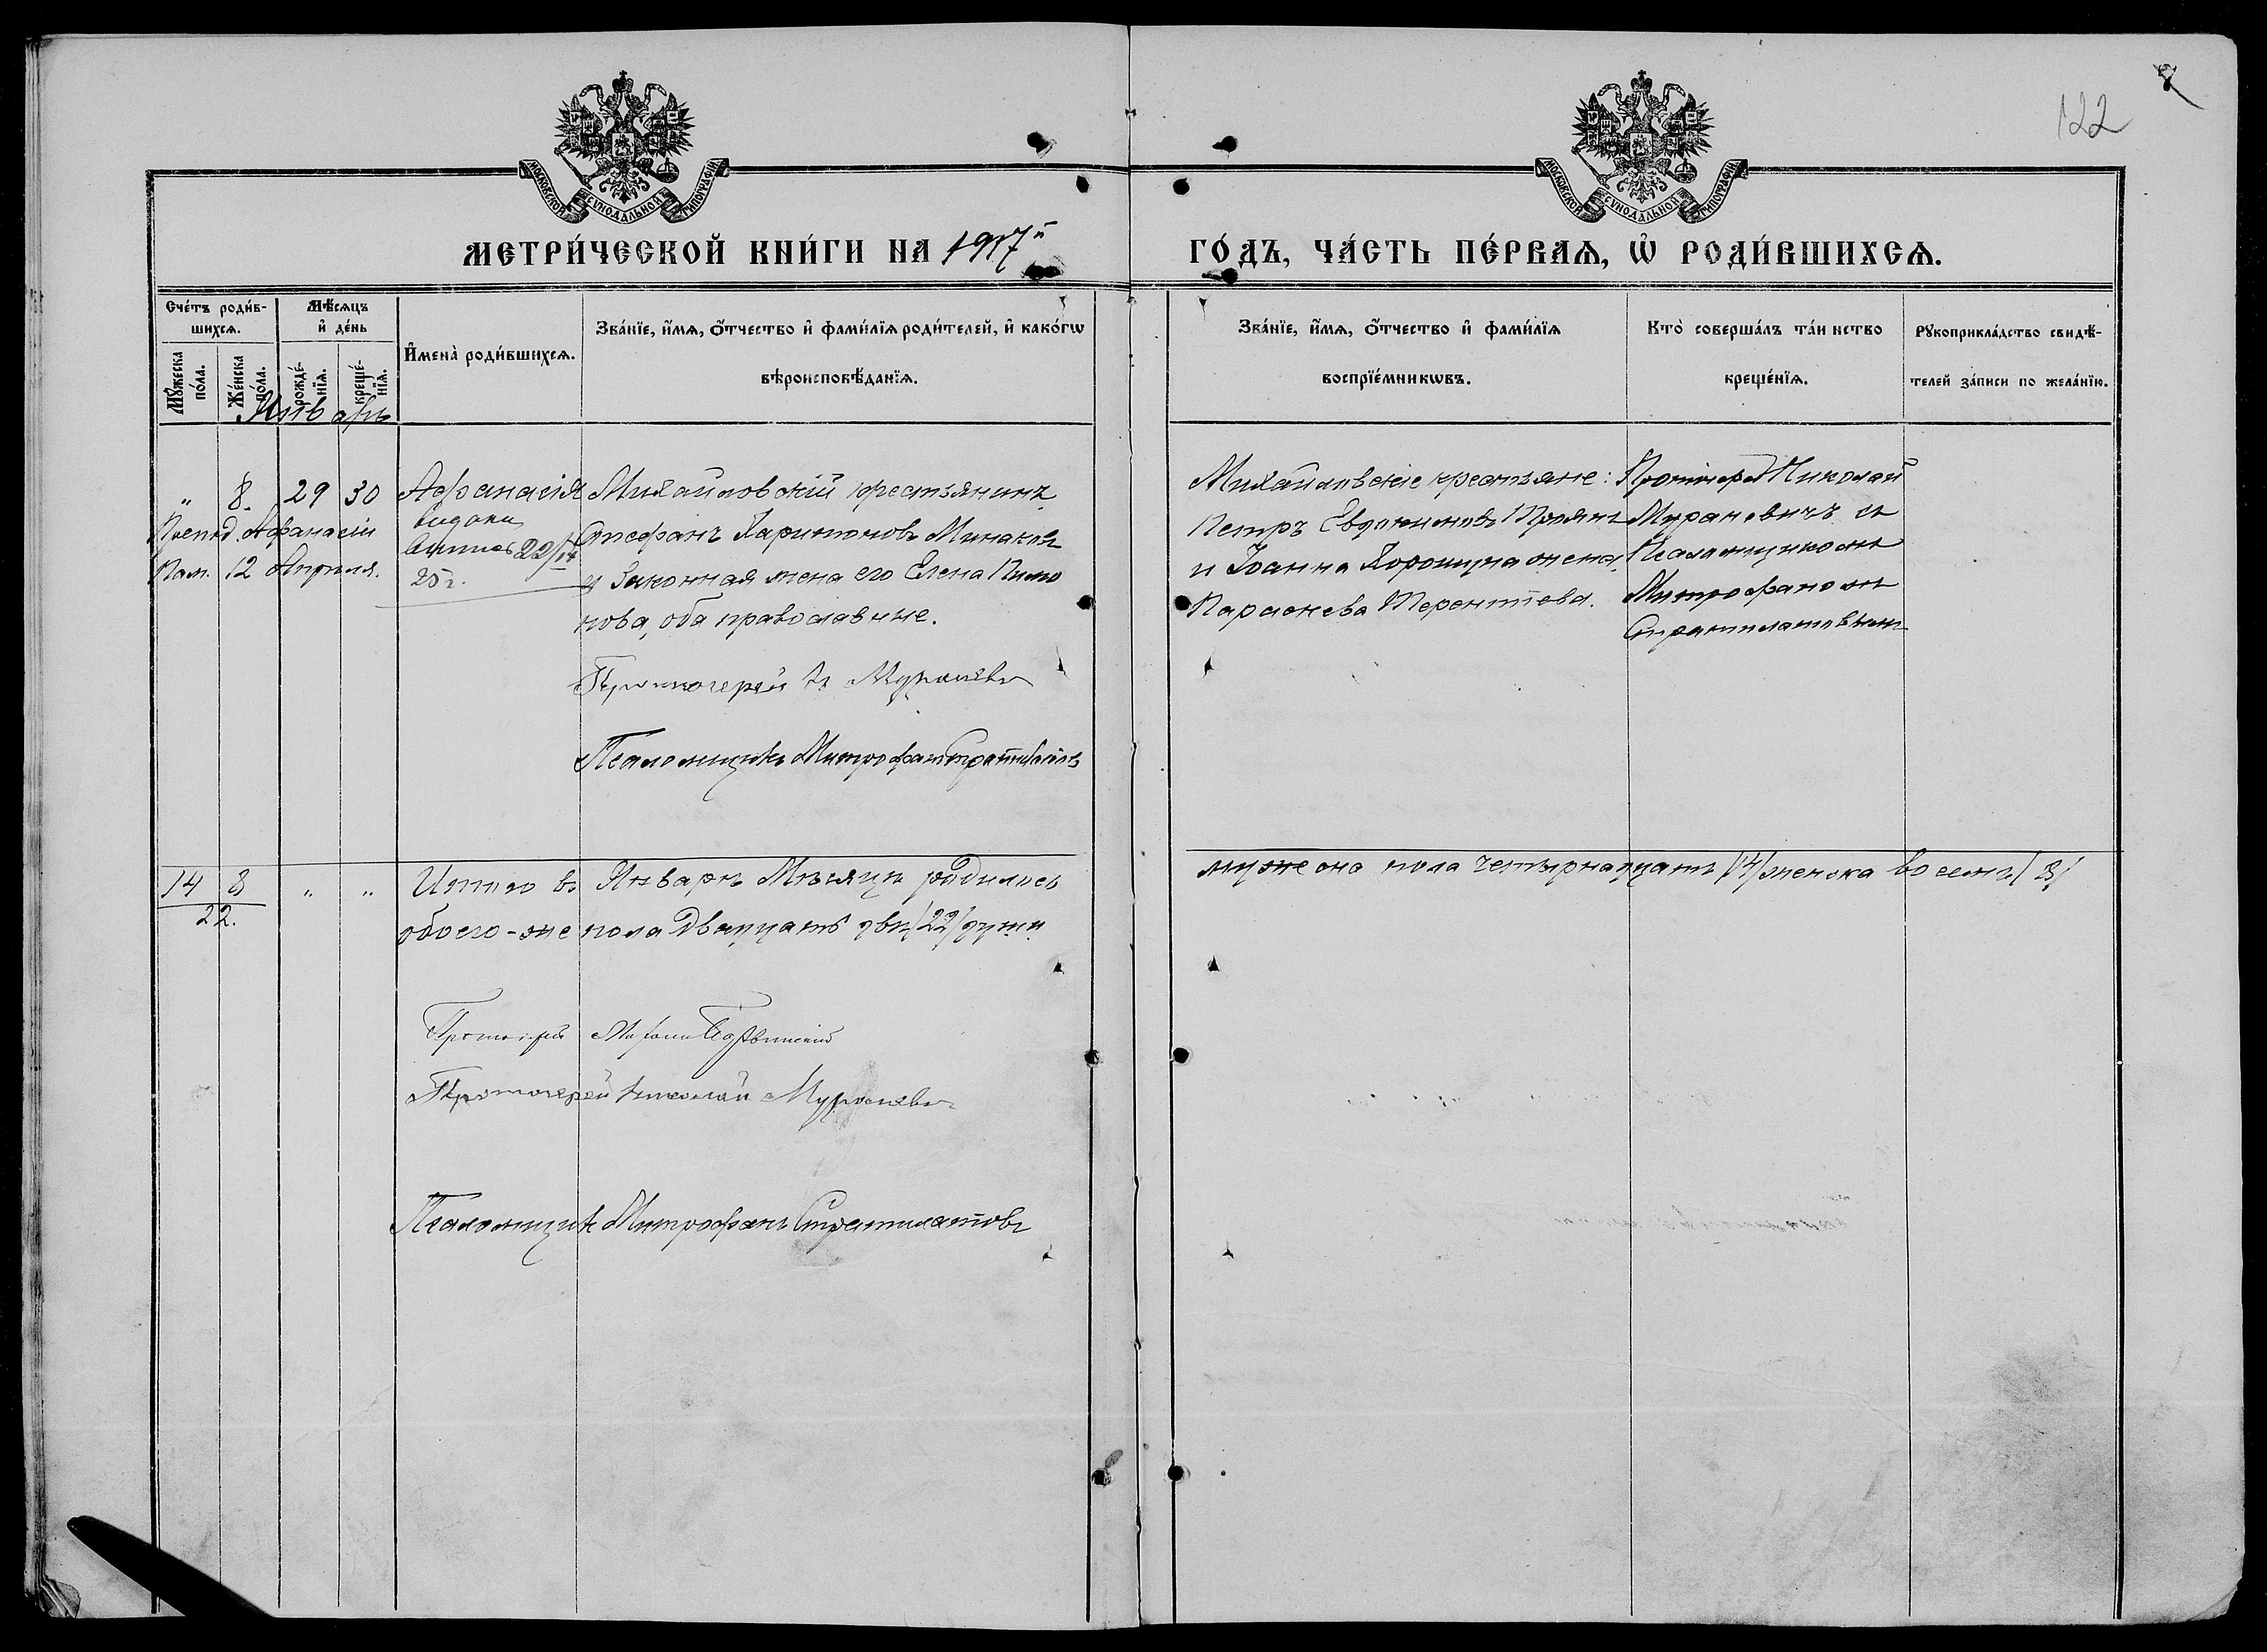 122
МОСКОВСКОЙ СУНОДАЛЬНОЙ ТИПОГРАФІИ
МОСКОВСКОЙ СУНОДАЛЬНОЙ ТИПОГРАФІИ
МЕТРИ́ЧЕСКОЙ КНИ́ГИ НА 1917й
ГО́ДЪ, ЧА́СТЬ ПЕ́РВАѦ, Ѡ҆ РОДИ́ВШИХСѦ.
Сче́тъ роди́в-
шихсѧ.
Мꙋ́жеска по́ла.
Же́нска по́ла.
Мѣ́сѧцъ
и҆ де́нь
рожде́-нїѧ.
креще́-нїѧ.
И҆мена̀ роди́вшихсѧ.
Зва́нїе, и҆́мѧ, ѻ҆́тчество и҆ фами́лїѧ роди́телей, и҆ како́гѡ
вѣроисповѣ́данїѧ.
Зва́нїе, и҆́мѧ, ѻ҆́тчество и҆ фами́лїѧ
воспрїе́мникѡвъ.
Кто̀ соверша́лъ та́инство
креще́нїѧ.
Рꙋкоприкла́дство свидѣ́-
телей за́писи по жела́нїю.
Январь
" 8. 29 30 Афанасія
Препод. Афанасіи
Пам. 12 Апрѣля.
22/IV
25 г.
Михайловскій крестьянинъ
Стефанъ Харитоновъ Минаковъ
и законная жена его Елена Пимо
нова, оба православные.
Протоіерей Н.
Псаломщикъ Митрофанъ Стратилатовъ
Михайловскіе крестьяне:
Петръ Евдокимовъ
и Іоанна Хорошуна жена
Параскева Терентіева.
Протоіерей Николай
съ
Псаломщикомъ
Митрофаномъ
Стратилатовымъ
14 8 " " Итого въ Январѣ Мѣсяцѣ родилось
22.
обоего-же пола Двадцать двѣ /22/ души
мужеска пола четырнадцать /14/ женска восемь /8/
Протоіерей
Протоіерей Николай
Псаломщикъ Митрофанъ Стратилатовъ